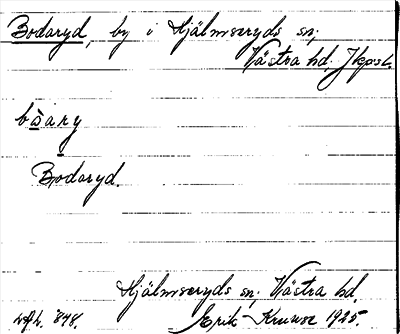 Bodaryd, by i Hjälmseryds sn;
Västra hd. Jkpsl.
bo̤ary
Bodaryd.
Hjälmseryds sn; Västra hd.
Erik Kruuse 1925.